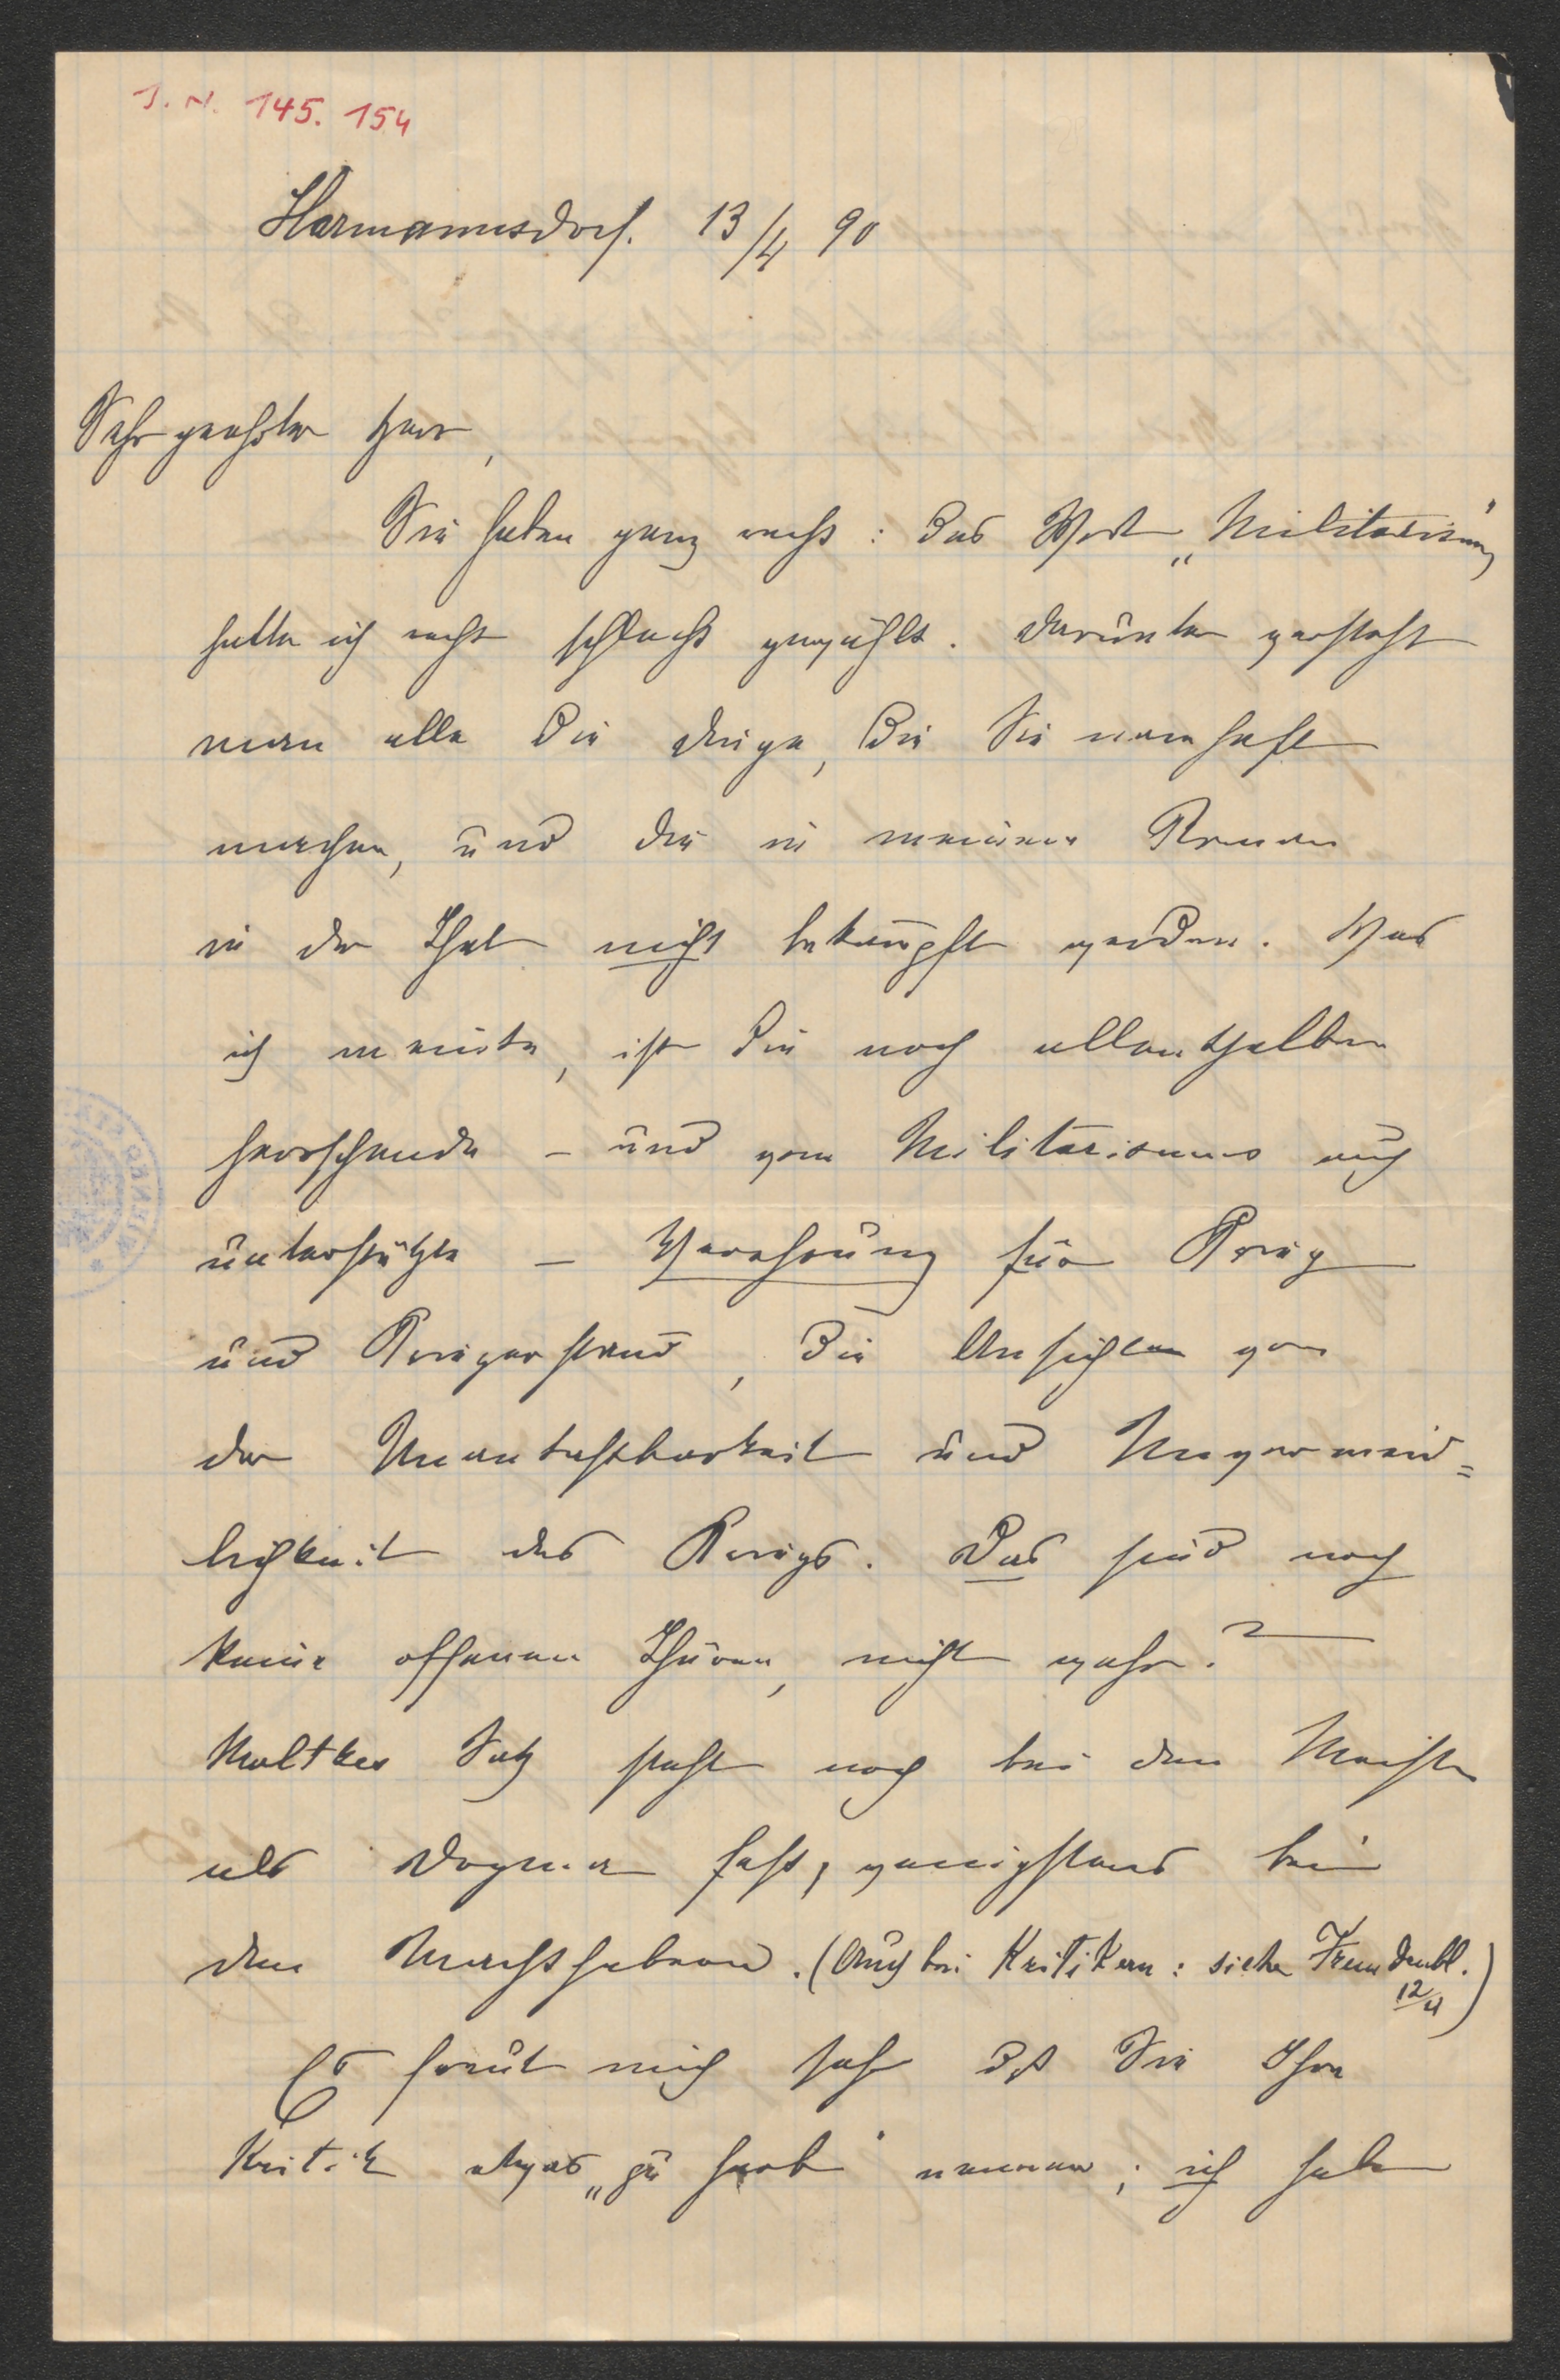 I. N. 145. 154
Harmannsdorf. 13/4 90
Sehr geehrter Herr,
Sie haben ganz recht: das Wort „Militarismus"
hatte ich recht schlecht gewählt. Darunter versteht
man alle die Dinge, die Sie namhaft
machen, und die in meinem Roman
in der That nicht bekämpft werden. Was
ich meinte, ist die noch allenthalben
herrschende – und vom Militarismus auch
unterstützte – Verehrung für Krieg
und Kriegerstand, die Ansichten von
der Unantastbarkeit und Unvermeid=
lichkeit des Kriegs. Das sind noch
keine offenen Thüren, nicht wahr?
Moltkes Satz steht noch bei den Meisten
als Dogma fest, wenigstens bei
den Machthabern. (Auch bei Kritikern: siehe Fremdenbl.
12/4)
Es freut mich sehr daß Sie Ihre
Kritik etwas „zu herb" nennen; ich habe